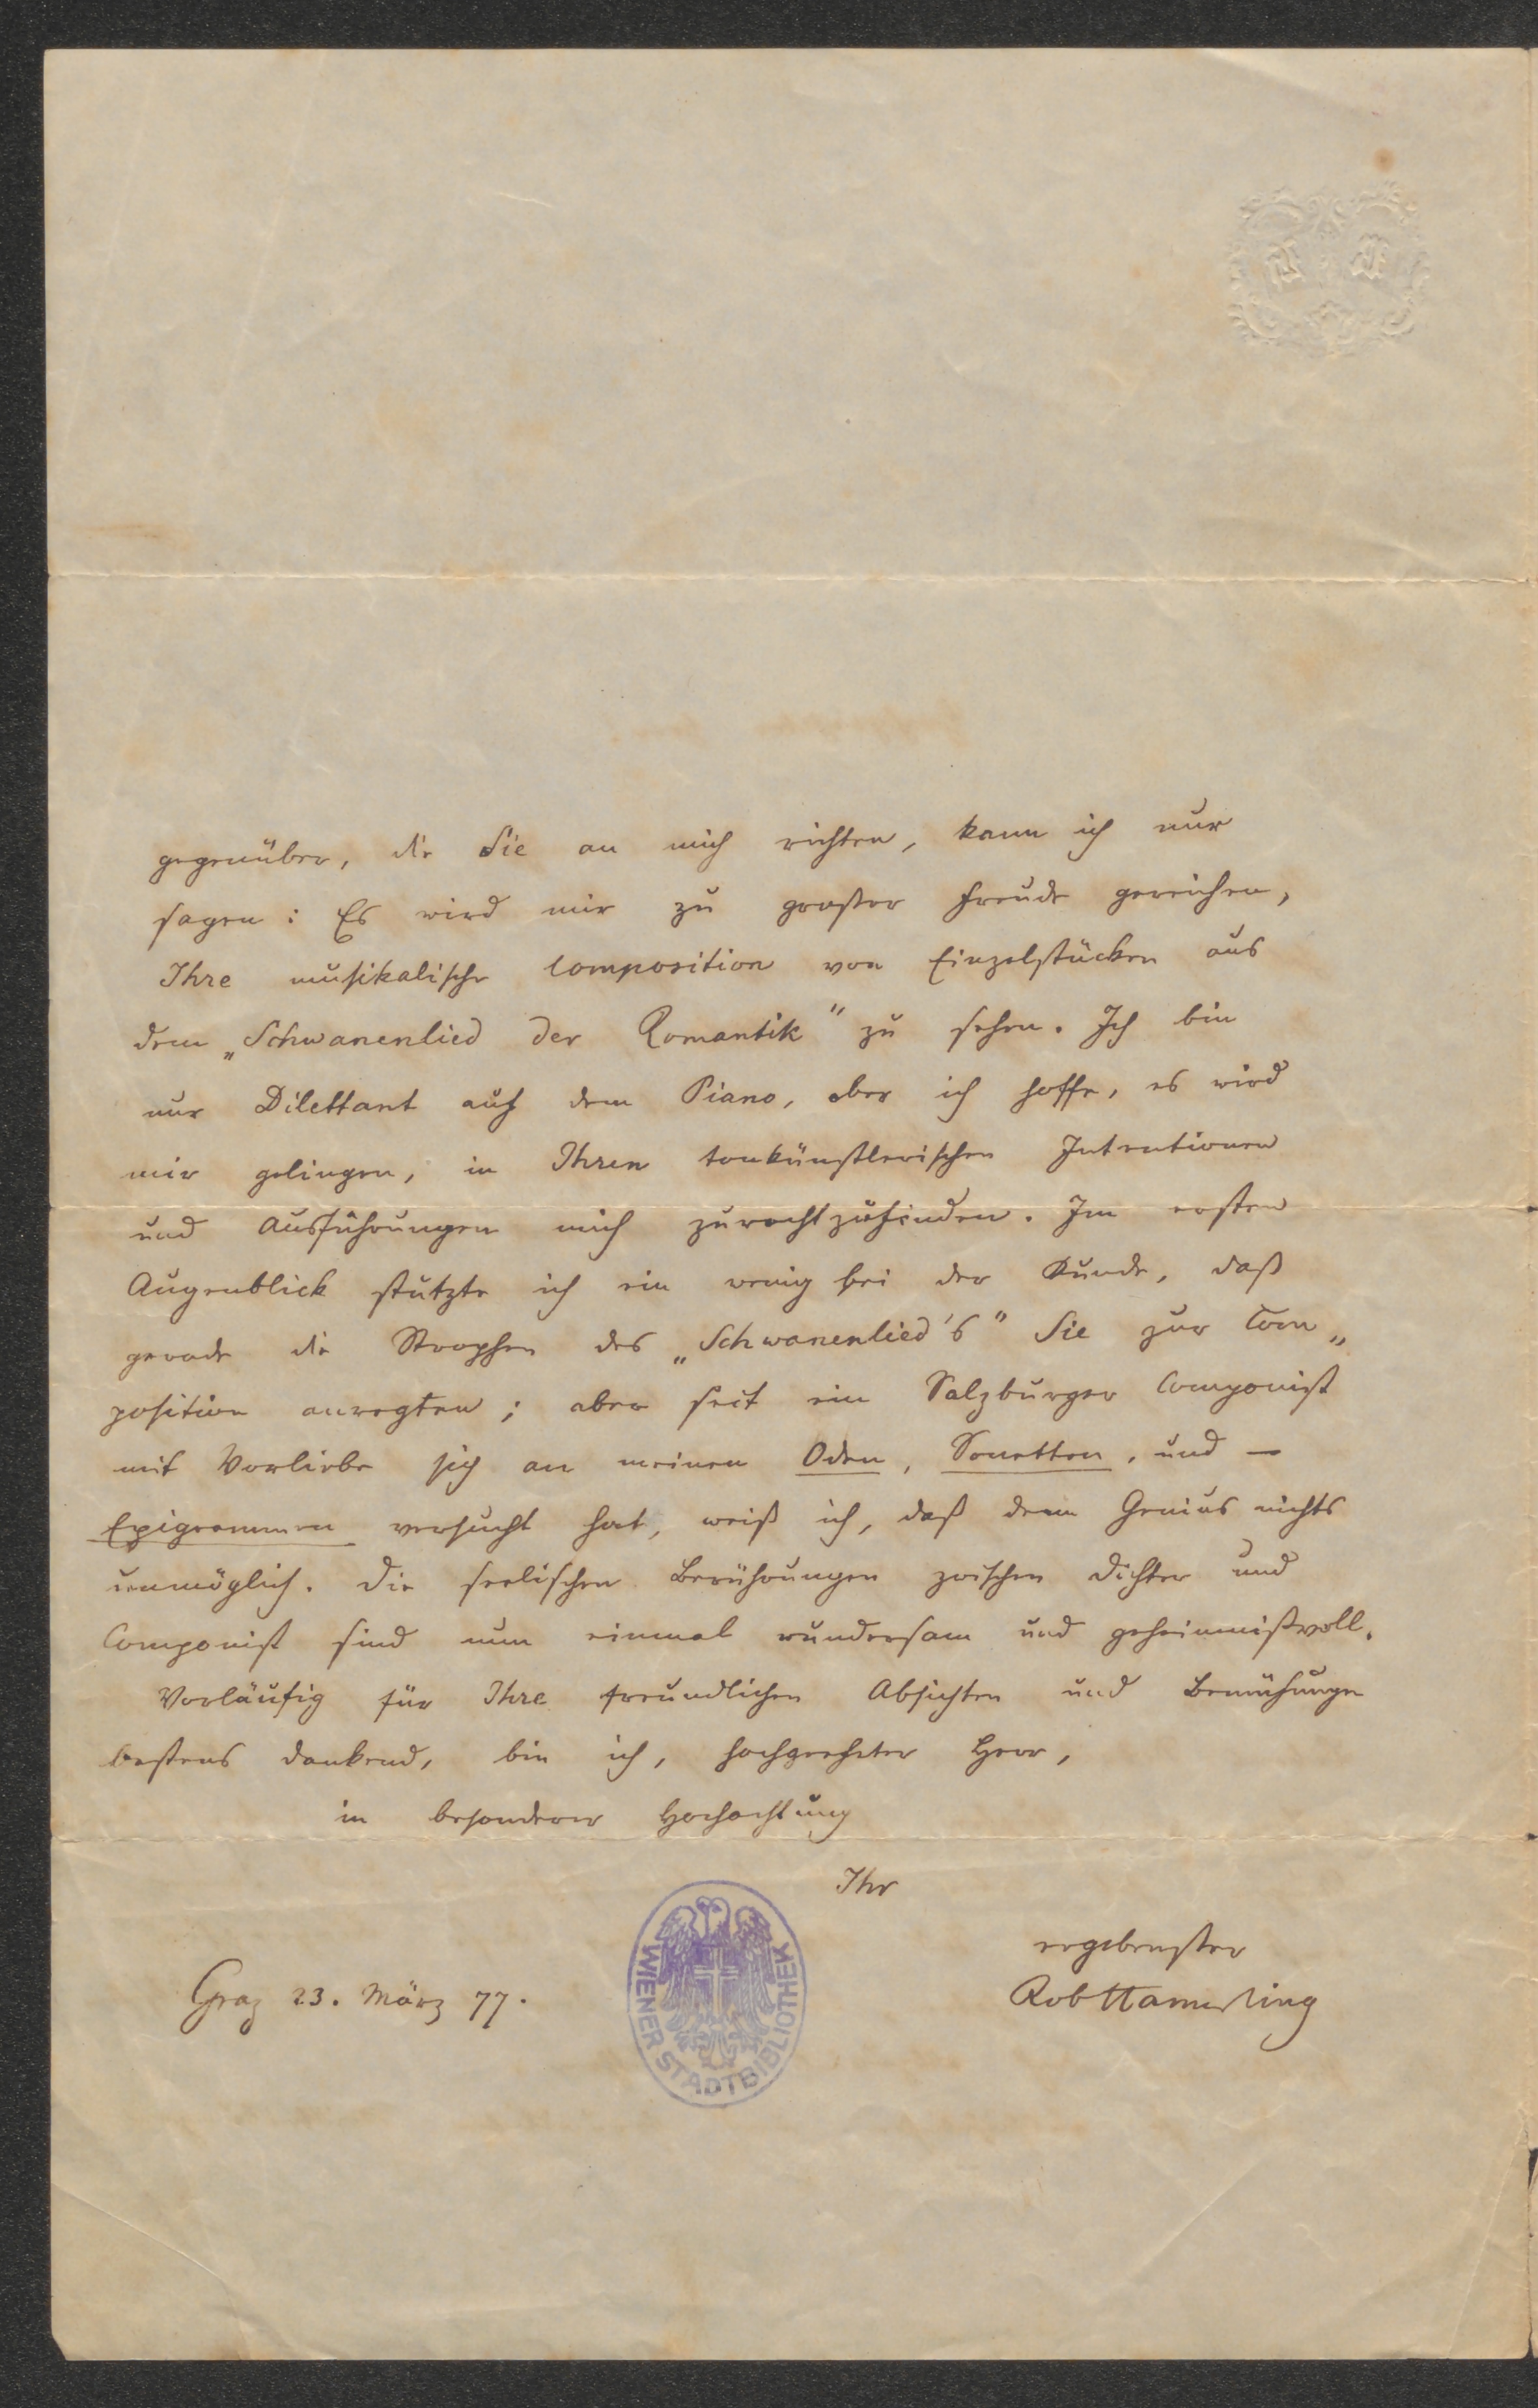 gegenüber, die Sie an mich richten, kann ich nur
sagen: Es wird mir zu großer Freude gereichen,
Ihre musikalische Composition von Einzelstücken aus
dem „Schwanenlied der Romantik" zu sehen. Ich bin
nur Dilettant auf dem Piano, aber ich hoffe, es wird
mir gelingen, in Ihren tonkünstlerischen Intentionen
und Ausführungen mich zurechtzufinden. Im ersten
Augenblick stutzte ich ein wenig bei der Kunde, daß
gerade die Strophen des „Schwanenlied's" Sie zur Com„
position anregten; aber seit ein Salzburger Componist
mit Vorliebe sich an meinen Oden, Sonetten, und —
Epigrammen versucht hat, weiß ich, daß dem Genius nichts
unmöglich. Die seelischen Berührungen zwischen Dichter und
Componist sind nun einmal wundersam und geheimnißvoll.
Vorläufig für Ihre freundlichen Absichten und Bemühungen
bestens dankend, bin ich, hochgeehrter Herr,
in besonderer Hochachtung
Ihr
ergebenster
Graz 23. März 77.
RobHamerling
WIENER STADTBIBLIOTHEK